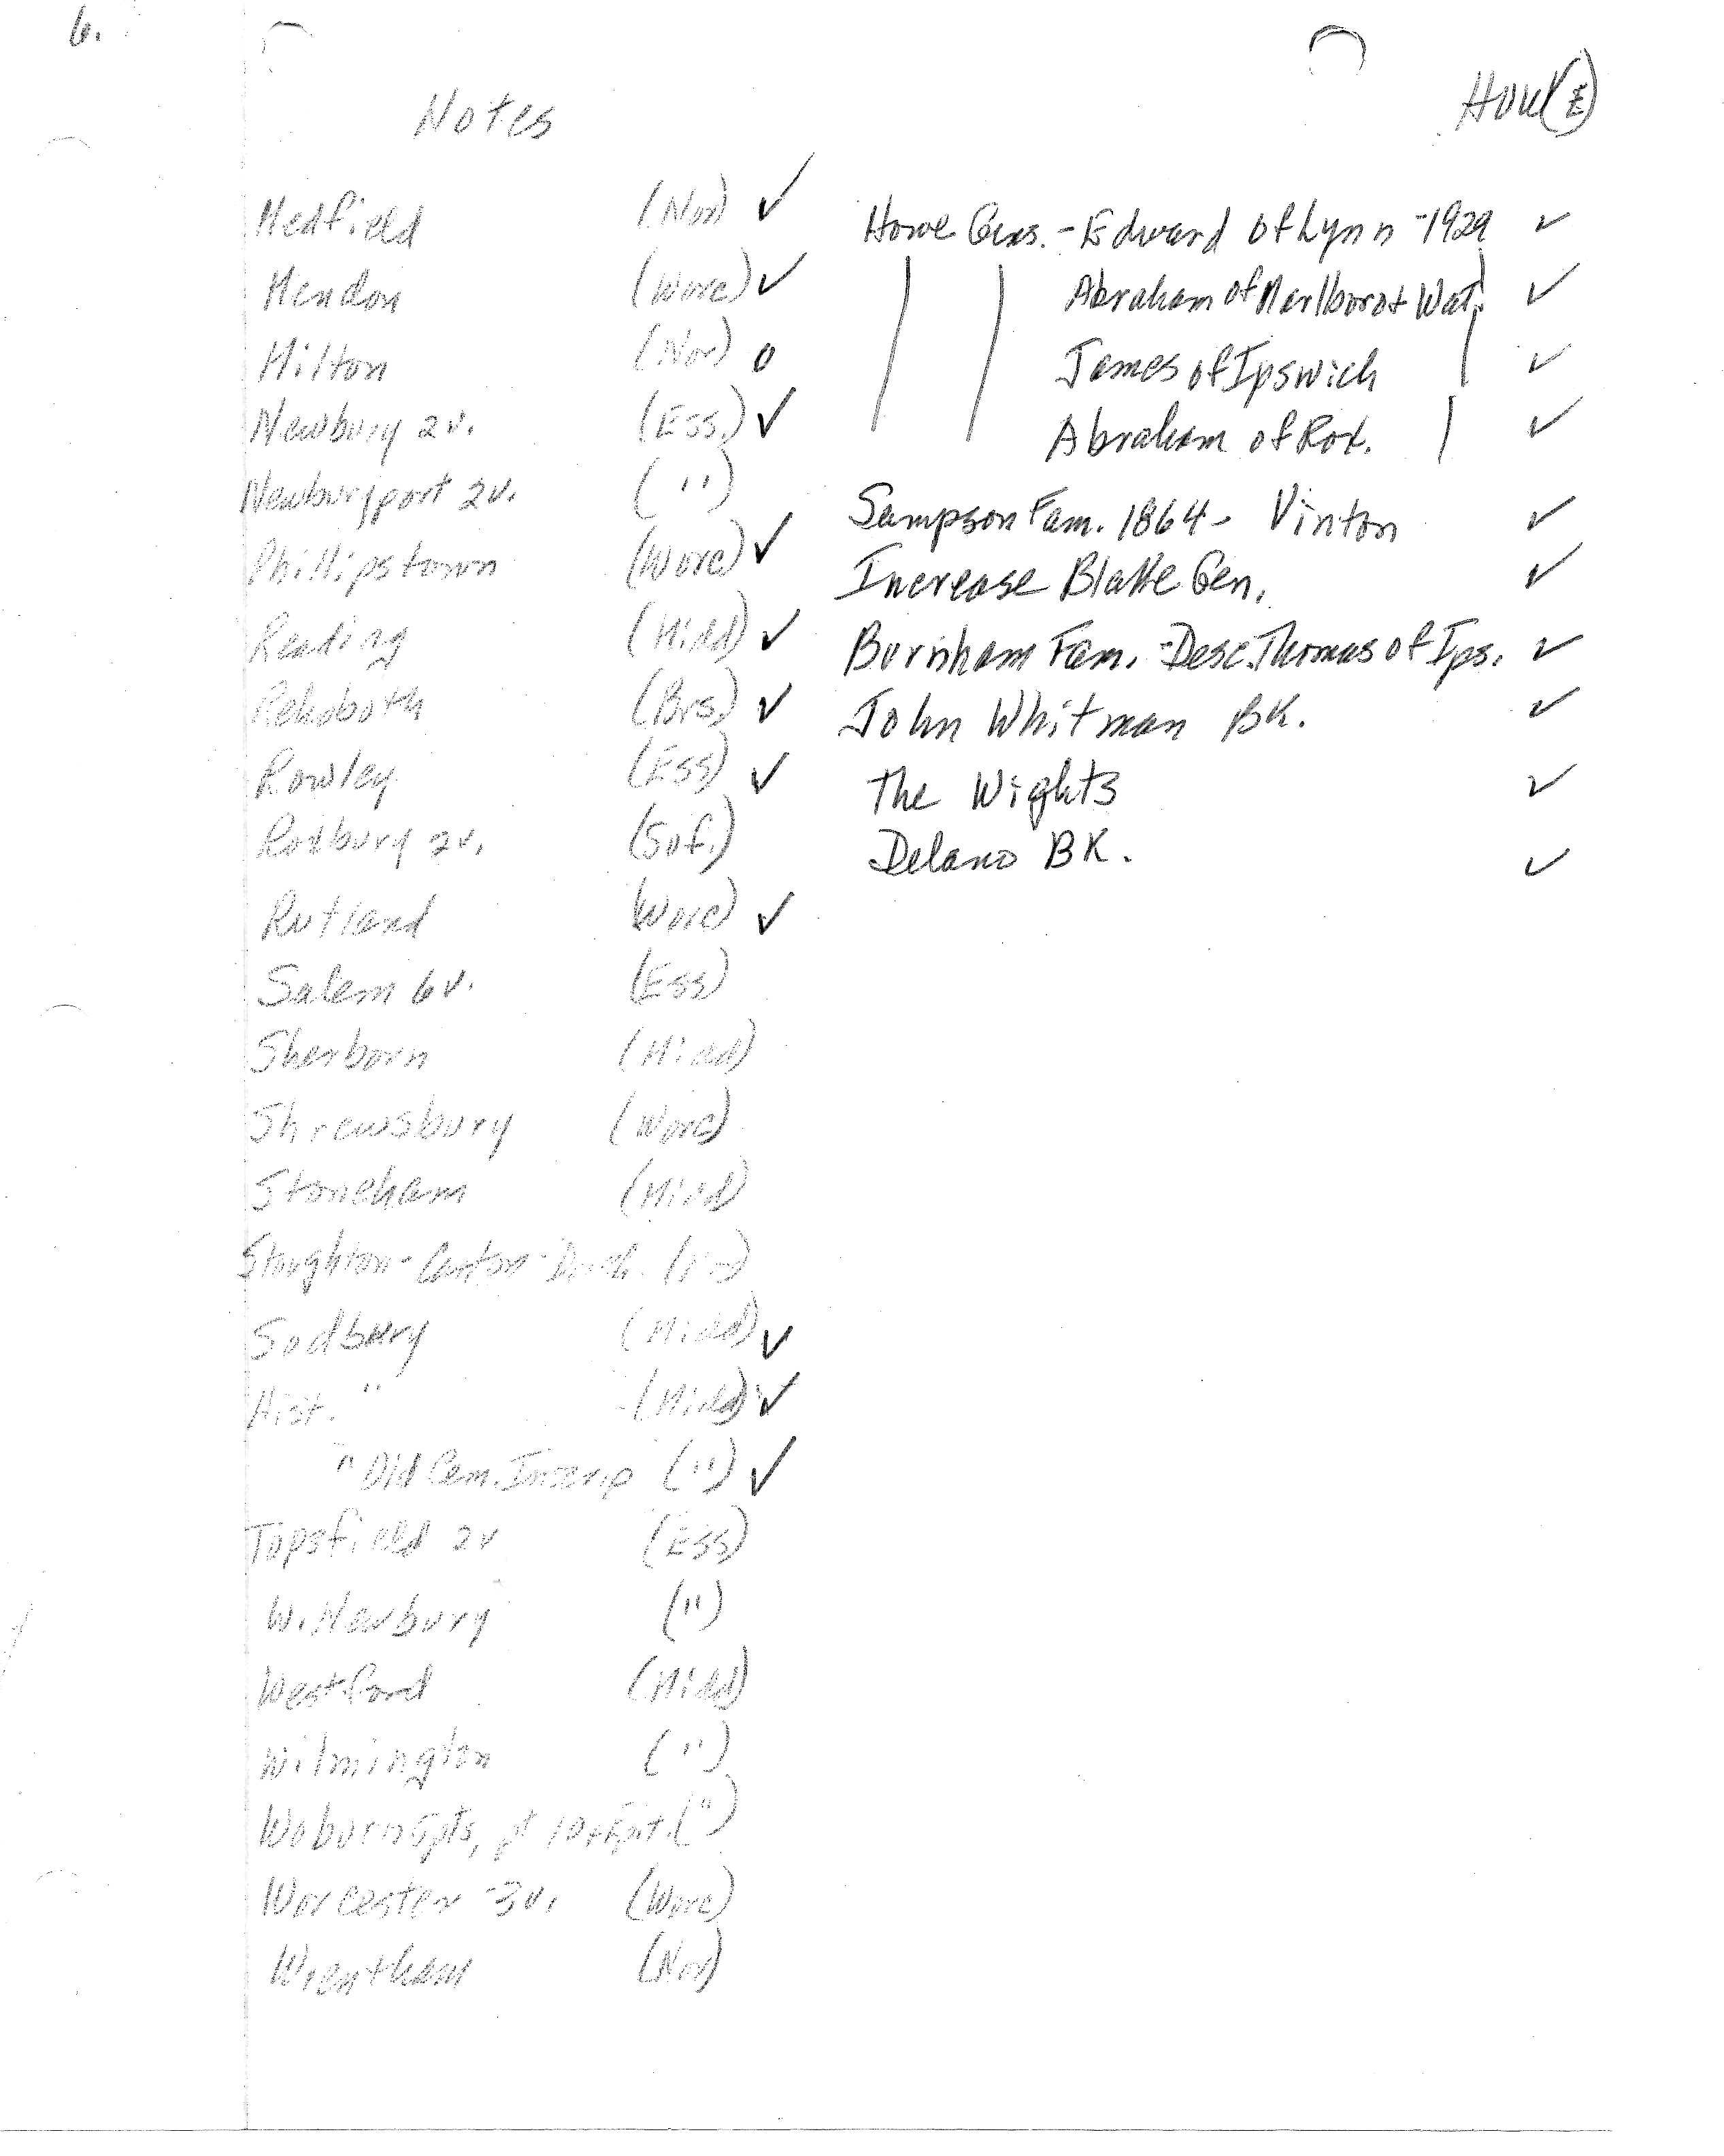 6.
Notes
How(E)
Medfield (Nor) ✓
Mendon (Worc) ✓
Milton (Nor) o
Newbury 2v. (Ess.) ✓
Newburyport 2v. (")
Phillipstown (Worc) ✓
Reading (Midd) ✓
Rehoboth (Brs.) ✓
Rowley (Ess) ✓
Roxbury 2v. (Suf.)
Rutland (Worc) ✓
Salem 6v. (Ess)
Sherborn (Midd)
Shrewsbury (Worc)
Stoneham (Midd)
Stoughton - Canton -
Sudbury (Midd) ✓
Hist. " (Midd) ✓
" Old Cem. Inscrip (") ✓
Topsfield 2v (Ess)
W. Newbury (")
Westford (Midd)
Wilmington (")
Woburn 5pts, pt 10 + (")
Worcester - 3v. (Worc)
Wrentham (Nor)
Howe Gens. - Edward of Lynn - 1929 ✓
Abraham of Marlboro + Wat. ✓
James of Ipswich ✓
Abraham of Rox. ✓
Sampson Fam. 1864 - Vinton ✓
Increase Blake Gen. ✓
Burnham Fam. - Desc. Thomas of Ips. ✓
John Whitman BK. ✓
The Wights ✓
Delano BK. ✓